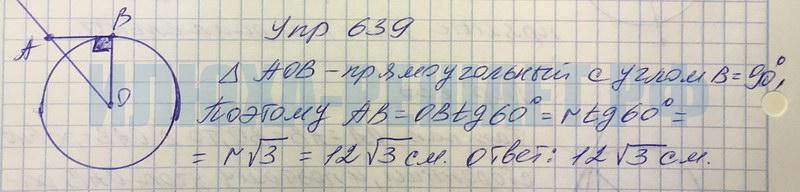 Упр 639
A B
Δ АОВ - прямоугольный с углом В = 90°,
O
Поэтому АВ = ОВtg60° = rtg60° =
= r√3 = 12√3 см. ответ: 12√3 см.